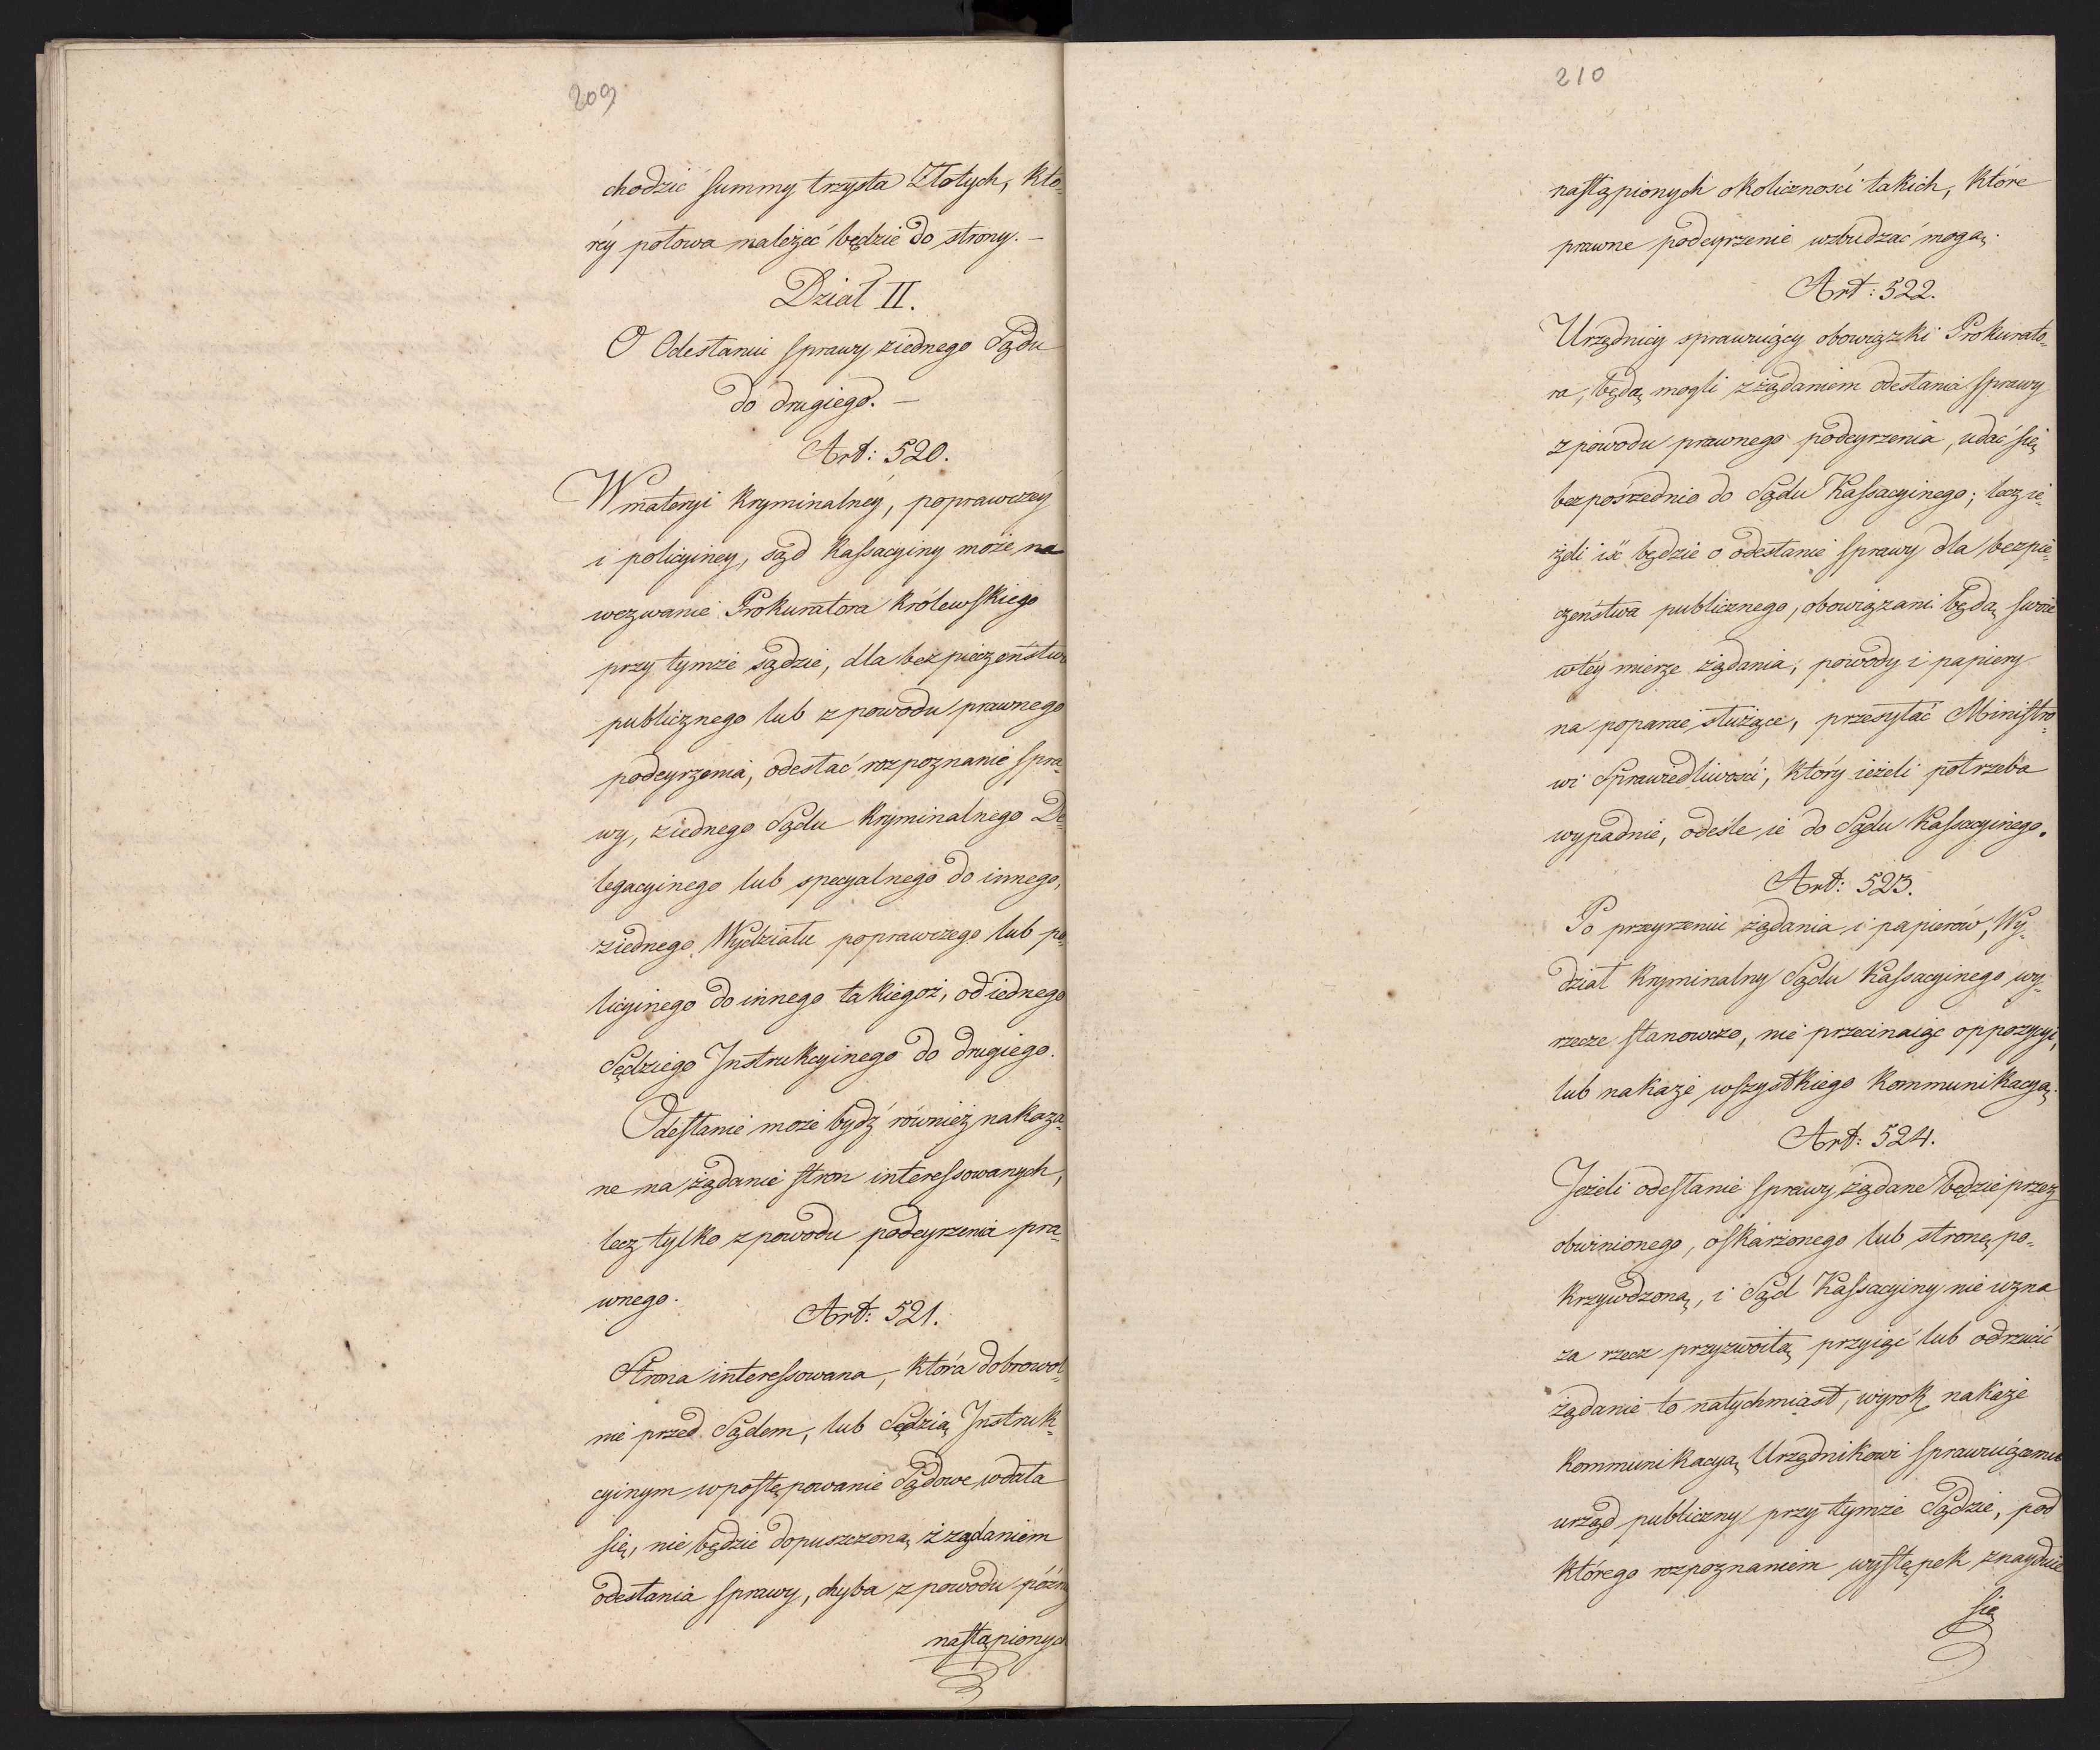 209
chodzić summy trzysta Złotych, któ-
réy połowa należeć będzie do strony. —
Dział II.
O Odesłaniu sprawy ziednego Sądu
do drugiego. —
Art: 520.
W materyi kryminalnéy, poprawczéy
i policyiney, sąd Kassacyiny może na
wezwanie Prokuratora Królewskiego
przy tymże sądzie, dla bezpieczeństwa
publicznego lub z powodu prawnego
podeyrzenia, odesłać rozpoznanie spra-
wy, ziednego Sądu Kryminalnego De-
legacyinego lub specyalnego do innego,
ziednego Wydziału poprawczego lub po-
licyinego do innego takiegoż, od iednego
Sędziego Instrukcyinego do drugiego.
Odesłanie może bydź również nakaza-
ne na żądanie stron interessowanych,
lecz tylko z powodu podeyrzenia pra-
wnego.
Art: 521.
Strona interessowana, która dobrowol-
nie przed Sądem, lub Sędzią Instruk-
cyinym w postępowanie Sądowe wdała
się, nie będzie dopuszczoną z żądaniem
odesłania sprawy, chyba z powodu późn
nastąpionych
210
nastąpionych okoliczności takich, które
prawne podeyrzenie wzbudzać mogą.
Art: 522.
Urzędnicy sprawuiący obowiązki Prokurato-
ra, będą mogli z żądaniem odesłania sprawy
z powodu prawnego podeyrzenia, udać się
bezpośrednio do Sądu Kassacyinego; lecz ie-
żeli iść będzie o odesłanie sprawy dla bezpie-
czeństwa publicznego, obowiązani będą swoie
w téy mierze żądania, powody i papiery
na poparcie służące, przesyłać Ministro-
wi Sprawiedliwości, który ieżeli potrzeba
wypadnie, odeśle ie do Sądu Kassacyinego.
Art: 523.
Po przeyrzeniu żądania i papierów, Wy-
dział Kryminalny Sądu Kassacyinego wy-
rzecze stanowczo, nie przecinaiąc oppozycyi,
lub nakaże wszystkiego kommunikacyą.
Art: 524.
Jeżeli odesłanie sprawy żądane będzie przez
obwinionego, oskarżonego lub stronę po-
krzywdzoną, i Sąd Kassacyiny nie uzna
za rzecz przyzwoitą przyiąć lub odrzucić
żądanie to natychmiast, wyrok nakaże
kommunikacyą Urzędnikowi sprawuiącemu
urząd publiczny przy tymże Sądzie, pod
którego rozpoznaniem występek znayduie
się